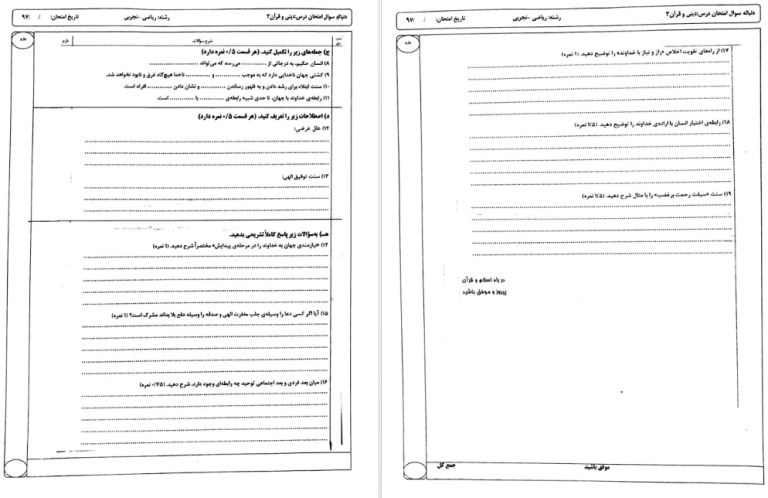 دنباله سوال امتحان درس:دینی و قرآن۳ رشته: ریاضی -تجربی تاریخ امتحان: / /۹۷
شرح سوالات بارم
ج) جمله‌های زیر را تکمیل کنید. (هر قسمت ۰/۵ نمره دارد)
۸) انسان حکیم، به درجاتی از ............ می‌رسد که می‌تواند ............
۹) کشتی جهان ناخدایی دارد که به موجب ............ و ............ ناخدا هیچ‌گاه غرق و نابود نخواهد شد.
۱۰) سنت ابتلاء برای رشد دادن و به ظهور رساندن ............ و نشان دادن ............ افراد است.
۱۱) رابطه‌ی خداوند با جهان، تا حدی شبیه رابطه‌ی ............ با ............ است.
د) اصطلاحات زیر را تعریف کنید. (هر قسمت ۰/۵ نمره دارد)
۱۲) علل عرضی:
۱۳) سنت توفیق الهی:
هـ) به‌سؤالات زیر پاسخ کاملاً تشریحی بدهید.
۱۴) «نیازمندی جهان به خداوند را در مرحله‌ی پیدایش» مختصراً شرح دهید. (۱ نمره)
۱۵) آیا اگر کسی دعا را وسیله‌ی جلب مغفرت الهی و صدقه را وسیله دفع بلا بداند مشرک است؟ (۱ نمره)
۱۶) میان بعد فردی و بعد اجتماعی توحید چه رابطه‌ای وجود دارد، شرح دهید. (۰/۷۵ نمره)
دنباله سوال امتحان درس:دینی و قرآن۳ رشته: ریاضی -تجربی تاریخ امتحان: / /۹۷
۱۷) از راه‌های تقویت اخلاص «راز و نیاز با خداوند» را توضیح دهید. (۱ نمره)
۱۸) رابطه‌ی اختیار انسان با اراده‌ی خداوند را توضیح دهید. (۱/۵ نمره)
۱۹) سنت «سبقت رحمت بر غضب» را با مثال شرح دهید. (۱/۵ نمره)
در راه اسلام و قرآن
پیروز و موفق باشید
موفق باشید جمع کل